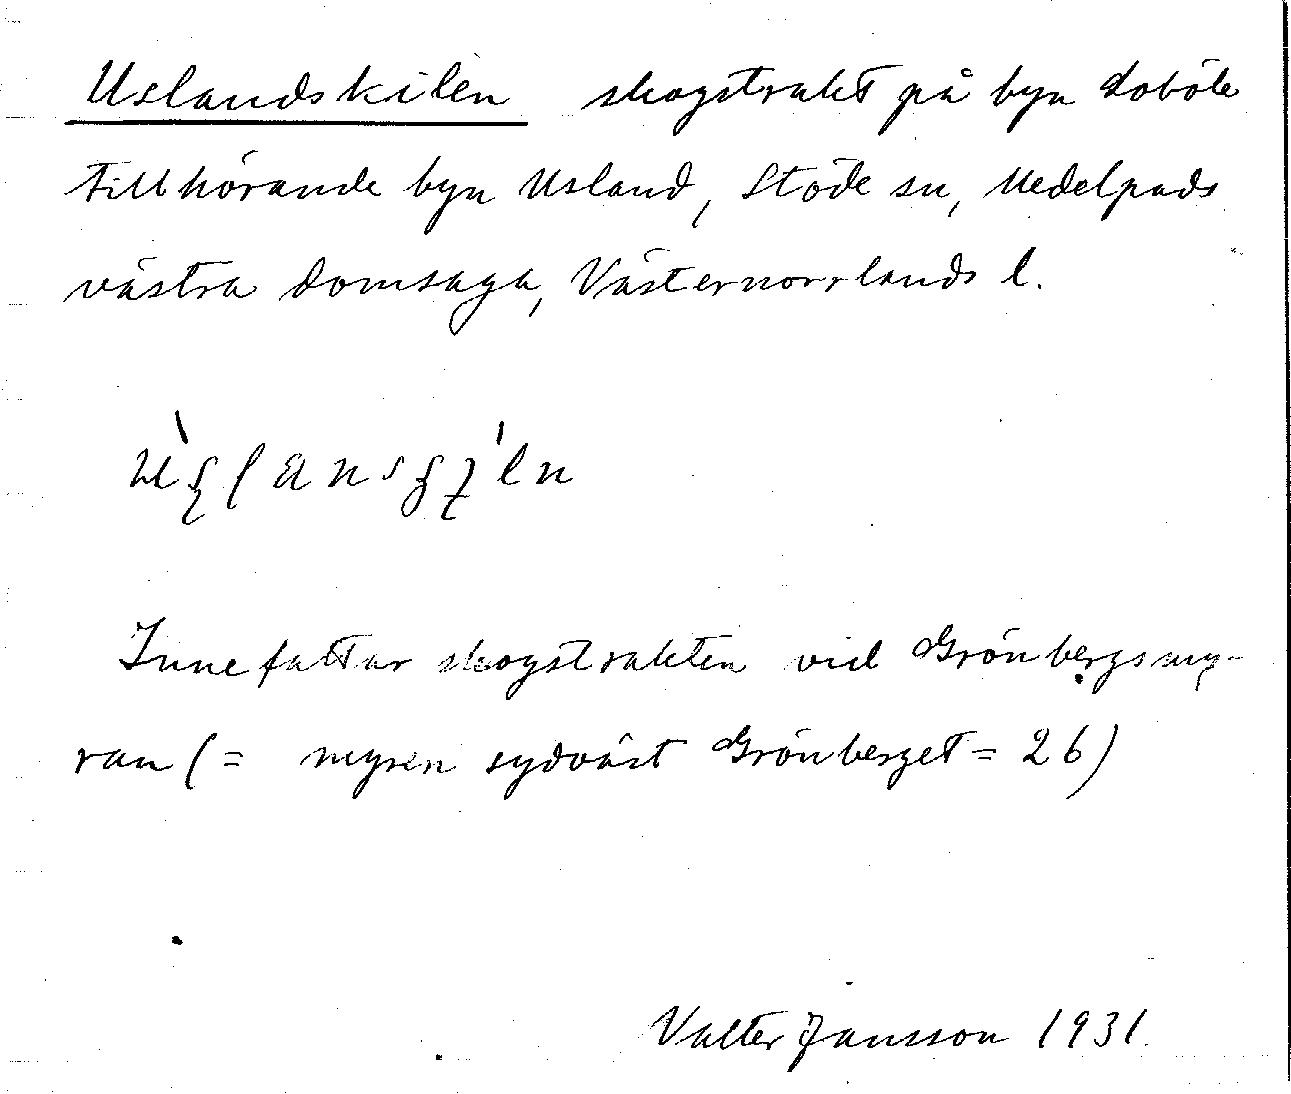 Uslandskilen skogstrakt på byn Loböle
tillhörande byn Usland, Stöde sn, Medelpads
västra domsaga, Västernorrlands l.
Innefattar skogstrakten vid Grönbergsmy-
ran (= myren sydväst Grönberget = 26)
Valter Jansson 1931.